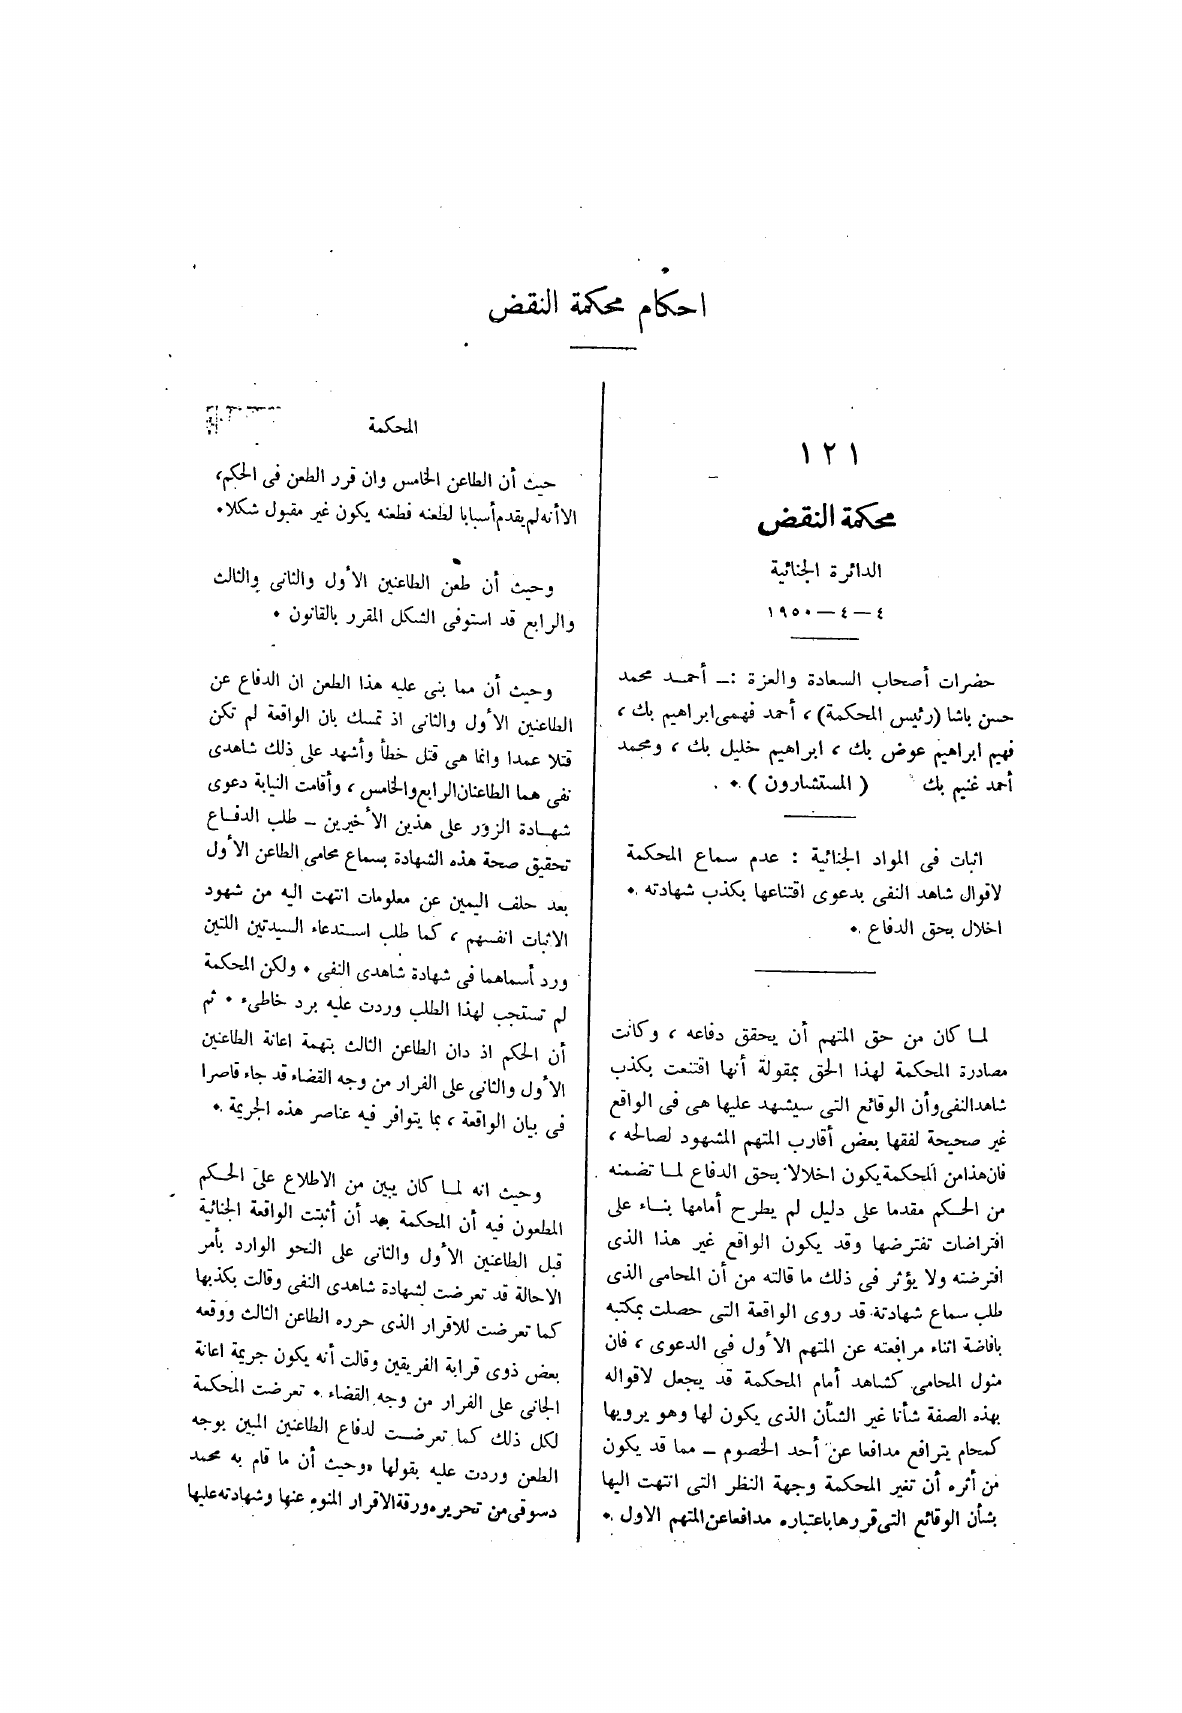 احكام محكمة النقض
١٢١
محكمة النقض
الدائرة الجنائية
٤ – ٤ – ١٩٥٠
حضرات أصحاب السعادة والعزة :ــ أحمد محمد
حسن باشا (رئيس المحكمة)، أحمد فهمى ابراهيم بك ،
فهيم ابراهيم عوض بك ، ابراهيم خليل بك ، ومحمد
أحمد غنيم بك ( المستشارون ) .
اثبات فى المواد الجنائية : عدم سماع المحكمة
لاقوال شاهد النفى بدعوى اقتناعها بكذب شهادته .
اخلال بحق الدفاع .
لما كان من حق المتهم أن يحقق دفاعه ، وكانت
مصادرة المحكمة لهذا الحق بمقولة أنها اقتنعت بكذب
شاهد النفى وأن الوقائع التى سيشهد عليها هى فى الواقع
غير صحيحة لفقها بعض أقارب المتهم المشهود لصالحه ،
فان هذا من المحكمة يكون اخلالا بحق الدفاع لما تضمنه
من الحكم مقدما على دليل لم يطرح أمامها بناء على
افتراضات تفترضها وقد يكون الواقع غير هذا الذى
افترضته ولا يؤثر فى ذلك ما قالته من أن المحامى الذى
طلب سماع شهادته قد روى الواقعة التى حصلت بمكتبه
بافاضة اثناء مرافعته عن المتهم الأول فى الدعوى ، فان
مثول المحامى كشاهد أمام المحكمة قد يجعل لاقواله
بهذه الصفة شأنا غير الشأن الذى يكون لها وهو يرويها
كمحام يترافع مدافعا عن أحد الخصوم ــ مما قد يكون
من أثره أن تغير المحكمة وجهة النظر التى انتهت اليها
بشأن الوقائع التى قررها باعتباره مدافعا عن المتهم الاول .
المحكمة
حيث أن الطاعن الخامس وان قرر الطعن فى الحكم،
الا أنه لم يقدم أسبابا لطعنه فطعنه يكون غير مقبول شكلا.
وحيث أن طعن الطاعنين الأول والثانى والثالث
والرابع قد استوفى الشكل المقرر بالقانون .
وحيث أن مما بنى عليه هذا الطعن ان الدفاع عن
الطاعنين الأول والثانى اذ تمسك بان الواقعة لم تكن
قتلا عمدا وانما هى قتل خطأ وأشهد على ذلك شاهدى
نفى هما الطاعنان الرابع والخامس ، وأقامت النيابة دعوى
شهادة الزور على هذين الأخيرين ــ طلب الدفاع
تحقيق صحة هذه الشهادة بسماع محامى الطاعن الأول
بعد حلف اليمين عن معلومات انتهت اليه من شهود
الاثبات انفسهم ، كما طلب استدعاء السيدتين اللتين
ورد أسماهما فى شهادة شاهدى النفى . ولكن المحكمة
لم تستجب لهذا الطلب وردت عليه برد خاطىء . ثم
أن الحكم اذ دان الطاعن الثالث بتهمة اعانة الطاعنين
الأول والثانى على الفرار من وجه القضاء قد جاء قاصرا
فى بيان الواقعة ، بما يتوافر فيه عناصر هذه الجريمة .
وحيث انه لما كان يبين من الاطلاع على الحكم
المطعون فيه أن المحكمة بعد أن أثبتت الواقعة الجنائية
قبل الطاعنين الأول والثانى على النحو الوارد بأمر
الاحالة قد تعرضت لشهادة شاهدى النفى وقالت بكذبها
كما تعرضت للاقرار الذى حرره الطاعن الثالث ووقعه
بعض ذوى قرابة الفريقين وقالت أنه يكون جريمة اعانة
الجانى على الفرار من وجه القضاء . تعرضت المحكمة
لكل ذلك كما تعرضت لدفاع الطاعنين المبين بوجه
الطعن وردت عليه بقولها «وحيث أن ما قام به محمد
دسوقى من تحريره ورقة الاقرار المنوه عنها وشهادته عليها